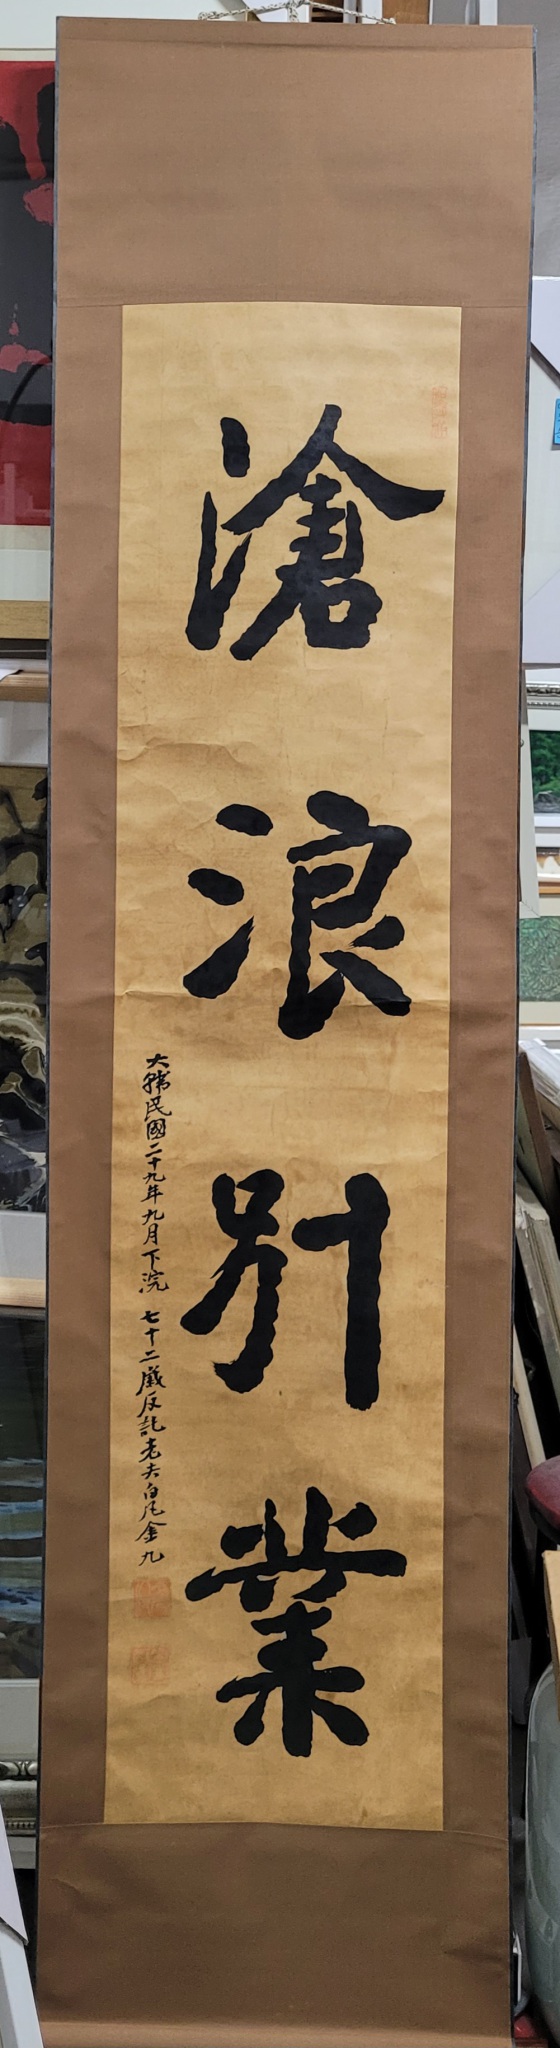 滄浪別業
大韓民國二十九年九月下浣 七十二歲反託老夫白凡金九